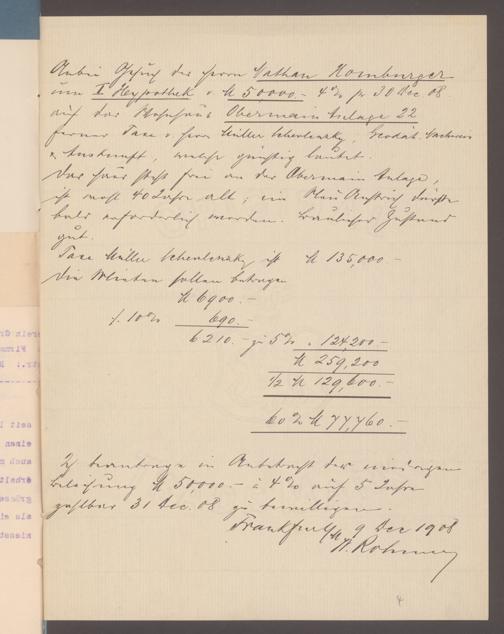 Anbei Gesuch des Herrn Nathan Homburger
um I Hypothek v. M 50,000.- 4% pr 30 Dec 08
auf das Wohnhaus Obermain Anlage 22
ferner Taxe v. Herrn Müller Scherlensky, Geodät. Nachweis
& Auskunft, welche günstig lautet.
Das Haus steht frei an der Obermain Anlage,
ist wohl 40 Jahre alt; ein Neu Anstrich dürfte
bald erforderlich werden. Baulicher Zustand
gut.
Taxe Müller Scherlensky ist M 135,000.-
Die Mieten sollen betragen
M 6900.-
./. 10% 690.-
6210.- zu 5% = 124,200.-
M 259,200
1/2 M 129,600.-
60% M 77,760.-
beantrage in Anbetracht der niedrigen
Beleihung M 50000.- à 4% auf 5 Jahre
zahlbar 31 Dec. 08 zu bewilligen.
Frankfurt a/M 9 Dec 1908